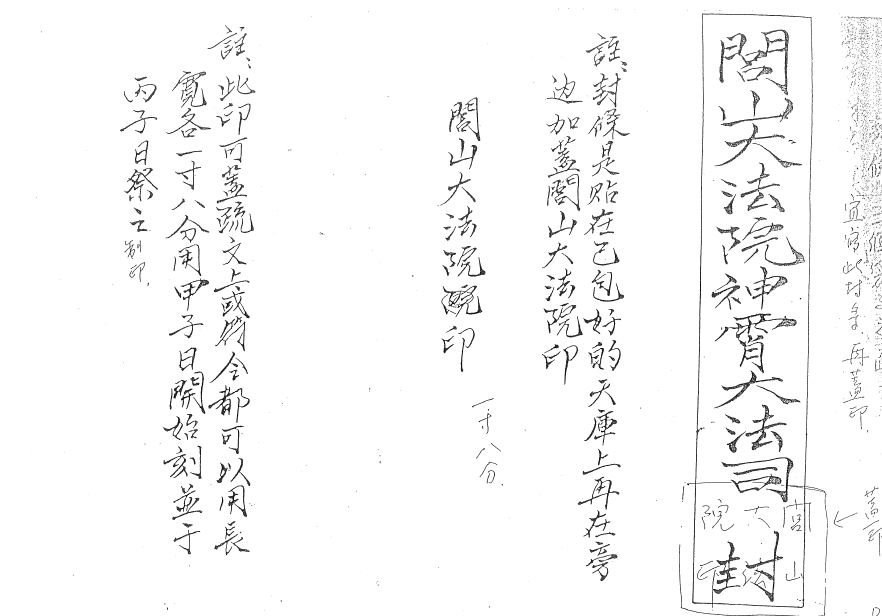 宜寫此封条,再蓋印.
蓋印
閭山大法院神霄大法司封
閭山
大法
院印
註:封條是貼在己包好的天庫上再在旁
边加蓋閭山大法院印
閭山大法院印
一寸八分.
註:此印可蓋疏文上或符令都可以用長
寬各一寸八分用甲子日開始刻並于
丙子日祭之制印.